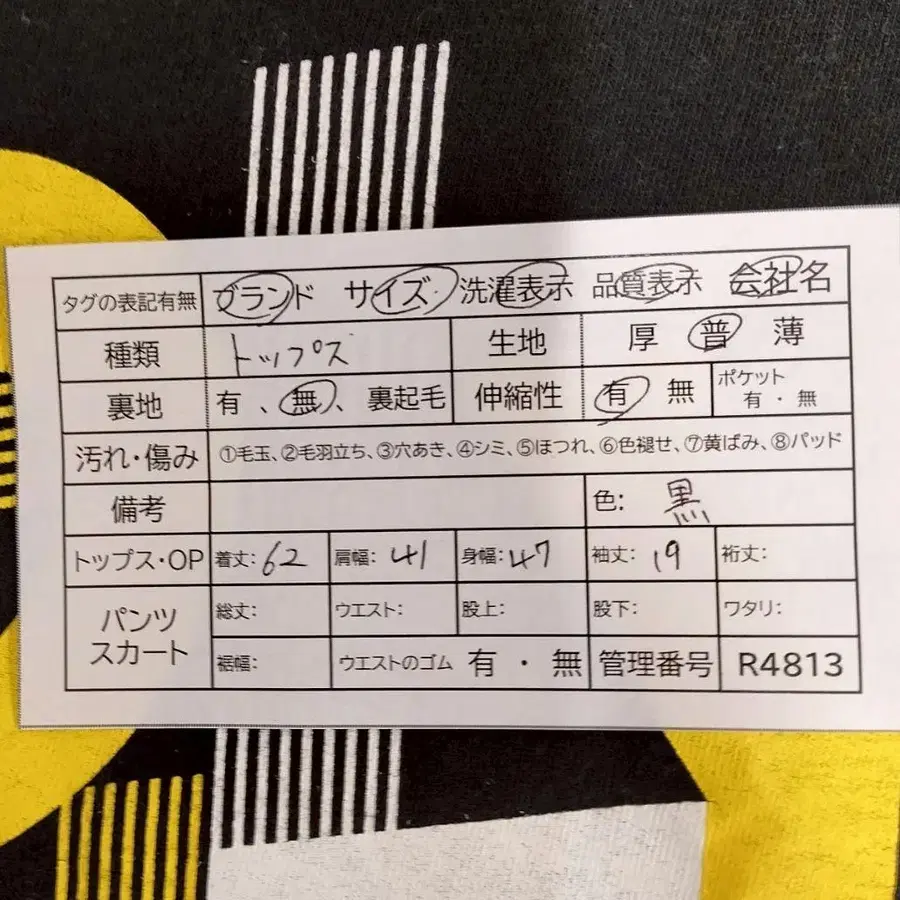 タグの表記有無 ブランド サイズ 洗濯表示 品質表示 会社名
種類 トップス 生地 厚 普 薄
裏地 有、無、裏起毛 伸縮性 有 無 ポケット 有・無
汚れ・傷み ①毛玉、②毛羽立ち、③穴あき、④シミ、⑤ほつれ、⑥色褪せ、⑦黄ばみ、⑧パッド
備考 色: 黒
トップス・OP 着丈: 62 肩幅: 41 身幅: 47 袖丈: 19 裄丈:
パンツ スカート 総丈: ウエスト: 股上: 股下: ワタリ:
裾幅: ウエストのゴム 有・無 管理番号 R4813